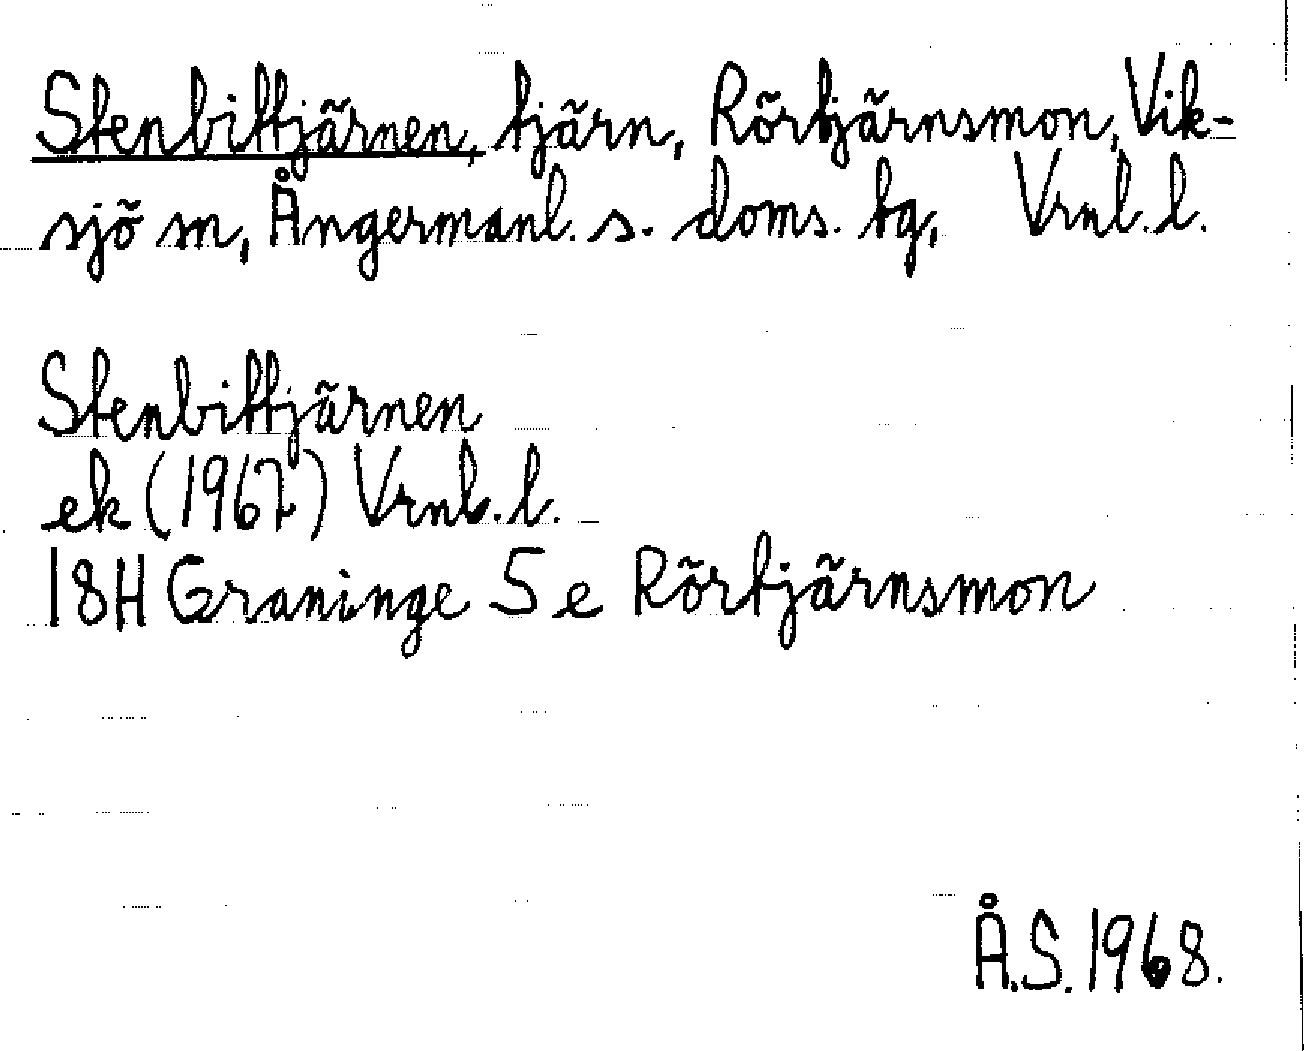 Stenbittjärnen, tjärn, Rörtjärnsmon, Vik-
sjö sn, Ångermanl. s. doms. tg, Vrnl. l.
Stenbittjärnen
ek (1967) Vrnl. l.
18H Graninge 5 e Rörtjärnsmon
Å.S. 1968.